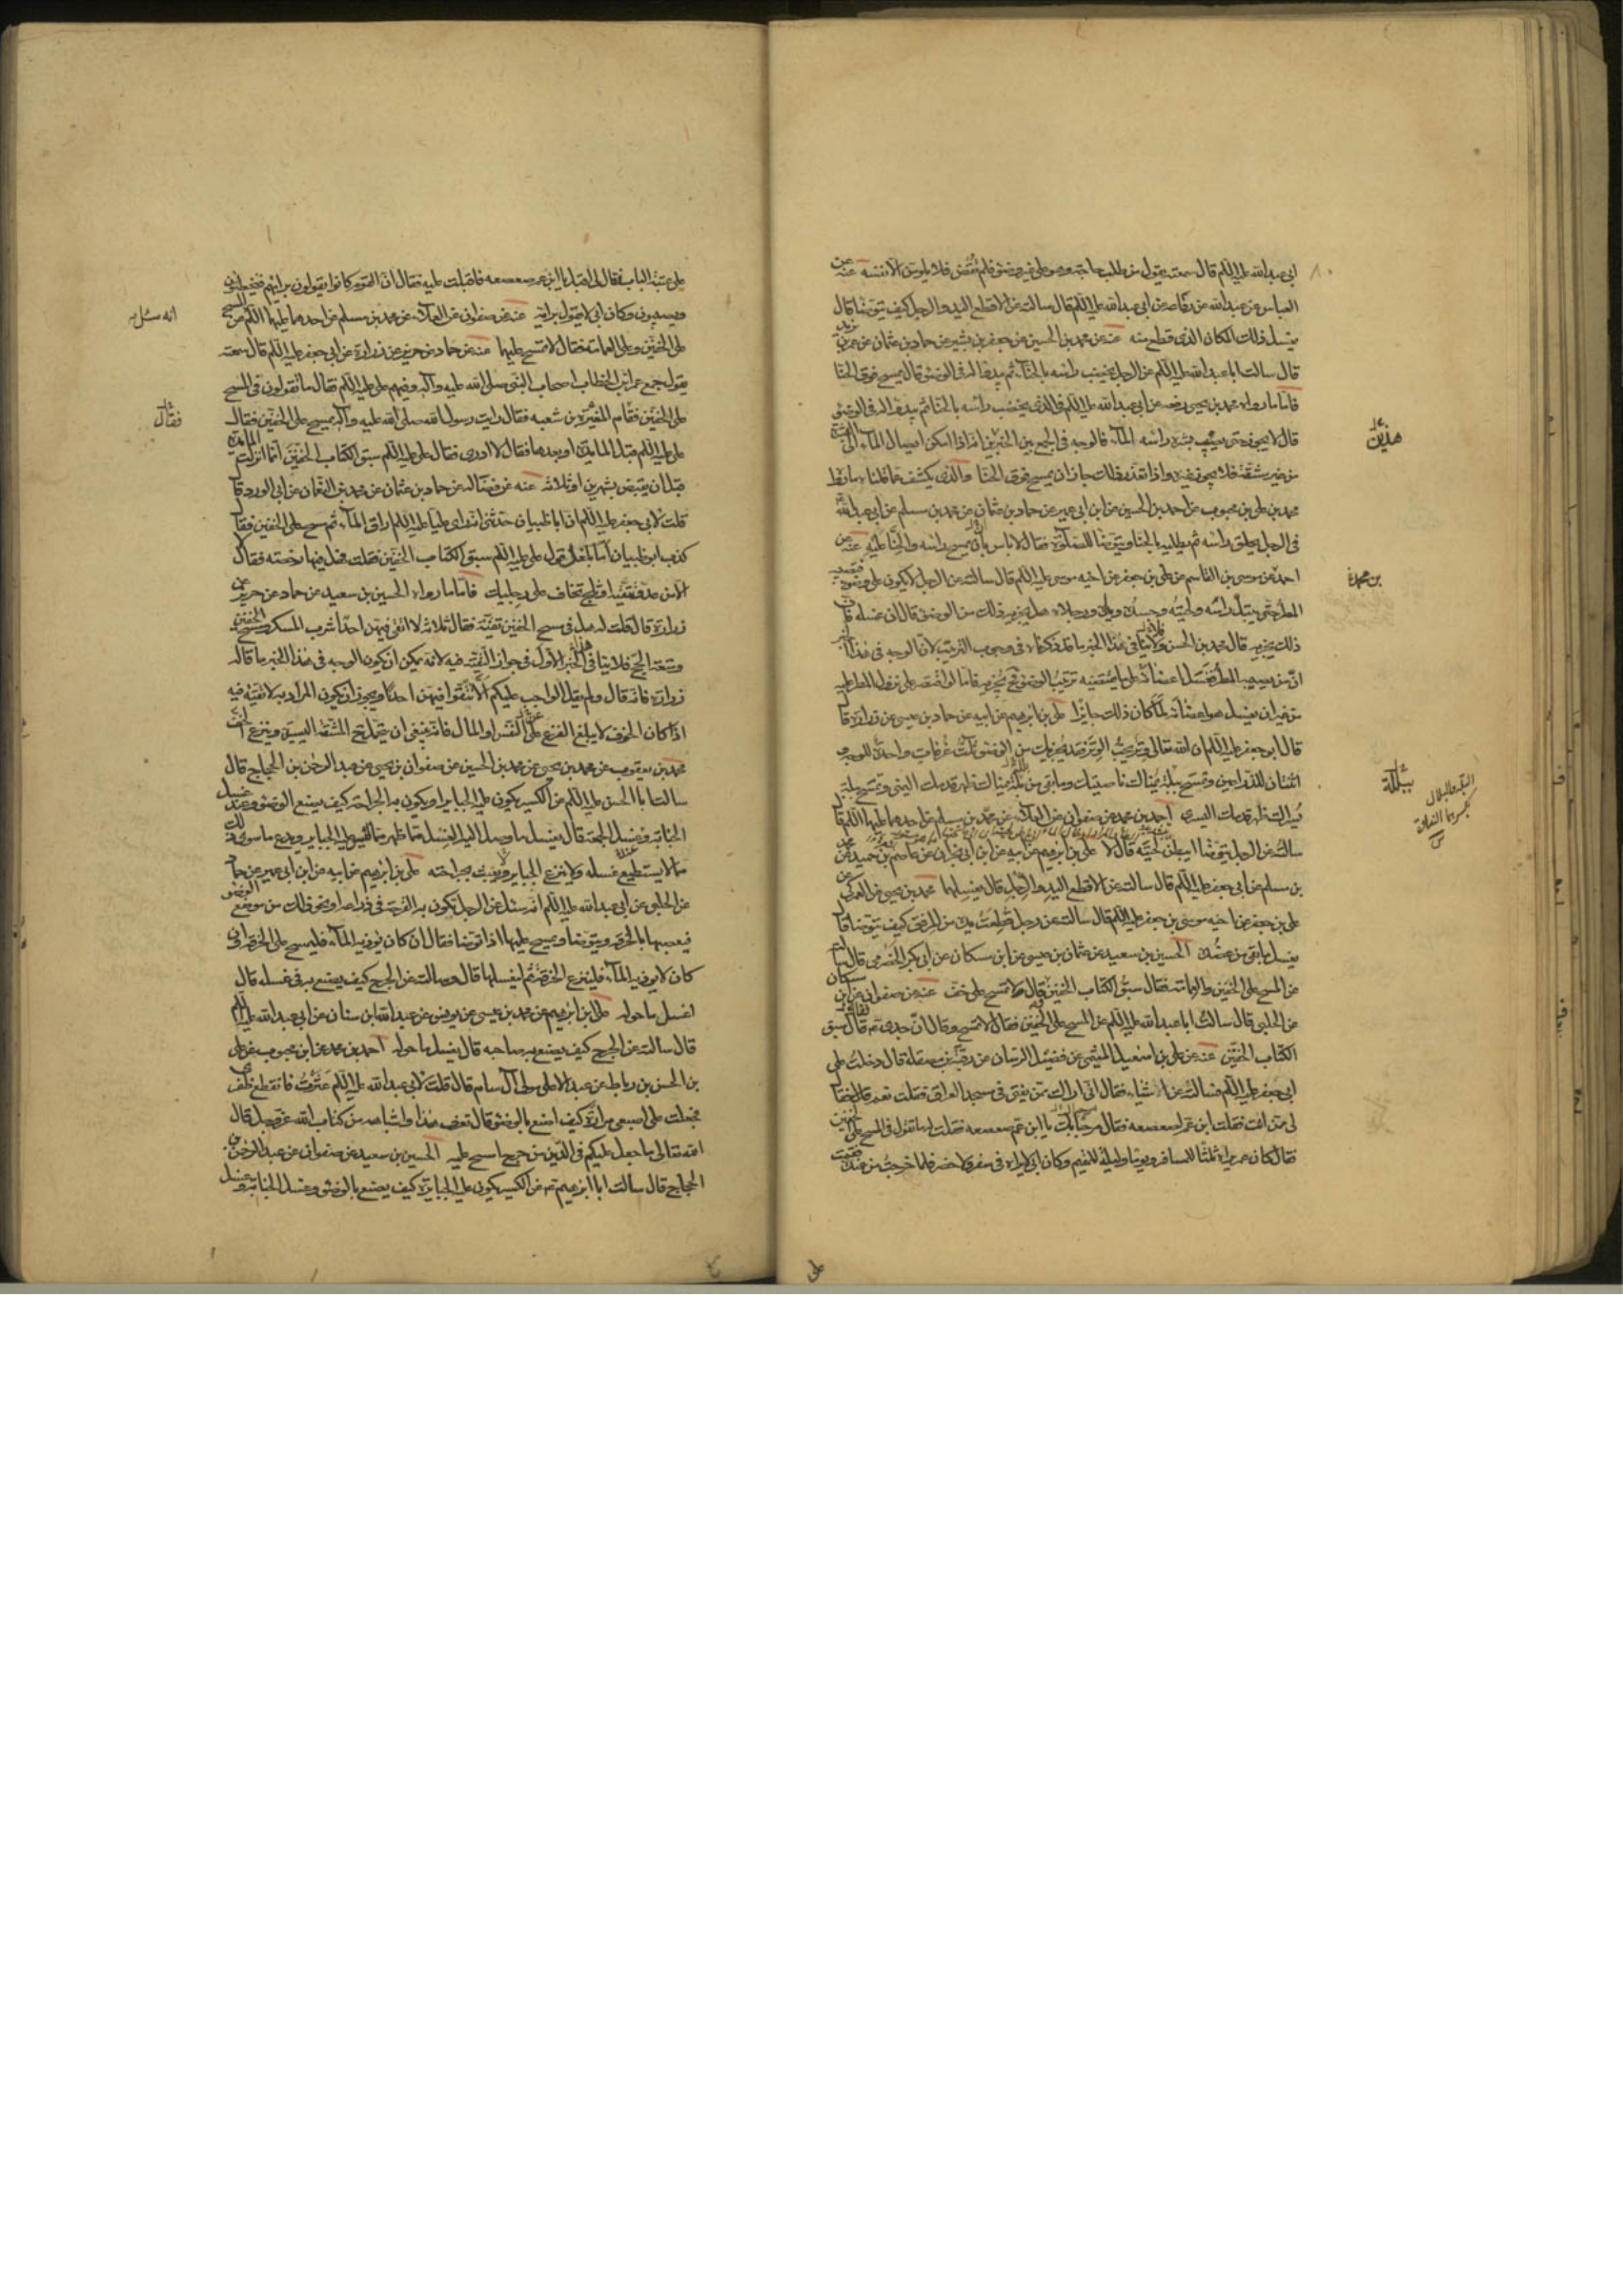 ابى عبد الله عليه السلم قال سمعته يقول من طلب حاجة وهو على غير وضوء فلم تقض فلا يلومن الا نفسه عنه عن
العباس عن عبد الله عن رفاعه عن ابى عبد الله عليه السلم قال سالته عن الاقطع اليد والرجل كيف يتوضا قال
يغسل ذلك المكان الذى قطع منه عنه عن محمد بن الحسين عن جعفر بن بشير عن حماد بن عثمان عن عمر بن يزيد
قال سالت ابا عبد الله عليه السلم عن الرجل يخضب راسه بالحنآء ثم يبدو له فى الوضوء قال يمسح فوق الحنا
فاما ما رواه محمد بن يحيى رفعه عن ابى عبد الله عليه السلم فى الذى يخضب راسه بالحنا ثم يبدو له فى الوضوء
قال لا يجوز حتى يصيب بشرة راسه المآء فالوجه فى الجمع بين الخبرين انه اذا امكن ايصال المآء الى البشرة
من غير مشقة فلا يجوز غيره واذا تعذر ذلك جاز ان يمسح فوق الحنا والذى يكشف عما قلناه ما رواه
محمد بن على بن محبوب عن احمد بن الحسين عن ابن ابى عمير عن حماد بن عثمان عن محمد بن مسلم عن ابى عبد الله
فى الرجل يحلق راسه ثم يطليه بالحنا ويتوضا للصلوة فقال لا باس بان يمسح راسه والحنا عليه عنه عن
احمد عن موسى بن القاسم عن على بن جعفر عن اخيه موسى عليه السلم قال سالته عن الرجل لا يكون على وضوء فيصيبه
المطر حتى يبتل راسه ولحيته وجسده ويداه ورجلاه هل يجزيه ذلك من الوضوء قال ان غسله فان
ذلك يجزيه قال محمد بن الحسن ولا ينافى هذا الخبر ما قدمنا ذكره فى وجوب الترتيب لان الوجه فى هذا الخبر
ان من يصيبه المطر فغسل اعضائه على ما يقتضيه ترتيب الوضوء يجزيه فاما اذا اقتصر على نزول المطر عليه
من غير ان يغسل هو اعضائه لما كان ذلك جايزا على بن ابرهيم عن ابيه عن حماد بن عيسى عن زرارة قا
قال ابو جعفر عليه السلم ان الله تعالى وتر يحب الوتر فقد يجزيك من الوضوء ثلث غرفات واحدة للوجه و
اثنتان للذراعين وتمسح ببلة يمناك ناصيتك وما بقى من بلة يمناك ظهر قدمك اليمنى وتمسح ببلة
يسراك ظهر قدمك اليسرى احمد بن محمد عن صفوان عن العلآء عن محمد بن مسلم عن احدهما عليهما السلم قا
سالته عن الرجل يتوضا ايبطن لحيته قال لا على بن ابرهيم عن ابيه عن ابن ابى نجران عن عاصم بن حميد عن محمد
بن مسلم عن ابى جعفر عليه السلم قال سالته عن الاقطع اليد والرجل قال يغسلهما محمد بن يحيى عن العمركى عن
على بن جعفر عن اخيه موسى بن جعفر عليه السلم قال سالته عن رجل قطعت يده من المرفق كيف يتوضا قا
يغسل ما بقى من عضده الحسين بن سعيد عن عثمان بن عيسى عن ابن مسكان عن ابى بكر الحضرمى قال سالته
عن المسح على الخفين والعمامة فقال سبق الكتاب الخفين وقال لا تمسح على خف عنه عن صفوان عن ابن مسكان
عن الحلبى قال سالت ابا عبد الله عليه السلم عن المسح على الخفين فقال لا تمسح وقال ان جدى قال سبق
الكتاب الخفين عنه عن على بن اسمعيل الميثمى عن فضيل الرسان عن رقبة بن مصقلة قال دخلت على
ابى جعفر عليه السلم فسالته عن اشياء فقال انى اراك ممن يفتى فى مسجد العراق فقلت نعم قال فقا
لى ممن انت فقلت ابن عم لصعصعه فقال مرحبا بك يا ابن عم صعصعه فقلت له ما تقول فى المسح على الخفين
فقال كان عمر يراه ثلثا للمسافر ويوما وليلة للمقيم وكان ابى لا يراه فى سفر ولا حضر فلما خرجت من عنده فقمت
هذين
بن محمد
ببلة
على
على عتبة الباب فقال لى اقبل يا ابن عم صعصعه فاقبلت عليه فقال ان القوم كانوا يقولون برايهم فيخطئون
ويصيبون وكان ابى لا يقول برايه عنه عن صفوان عن العلآء عن محمد بن مسلم عن احدهما عليهما السلم عن المسح
على الخفين وعلى العمامة فقال لا تمسح عليهما عنه عن حماد عن حريز عن زرارة عن ابى جعفر عليه السلم قال سمعته
يقول جمع عمر ابن الخطاب اصحاب النبى صلى الله عليه وآله وفيهم على عليه السلم فقال ما تقولون فى المسح
على الخفين فقام المغيرة بن شعبه فقال رايت رسول الله صلى الله عليه وآله يمسح على الخفين فقال
على عليه السلم قبل المائدة او بعدها فقال لا ادرى فقال على عليه السلم سبق الكتاب الخفين انما انزلت المائدة
قبل ان يقبض بشهرين او ثلاثة عنه عن فضاله عن حماد بن عثمان عن محمد بن النعمان عن ابى الورد قا
قلت لابى جعفر عليه السلم ان ابا ظبيان حدثنى انه راى عليا عليه السلم اراق المآء ثم مسح على الخفين فقا
كذب ابو ظبيان اما بلغك قول على عليه السلم سبق الكتاب الخفين فقلت فهل فيهما رخصه فقال لا
الا من عدو تتقيه او ثلج تخاف على رجليك فاما ما رواه الحسين بن سعيد عن حماد عن حريز عن
زرارة قال قلت له هل فى مسح الخفين تقية فقال ثلاثه لا اتقى فيهن احدا شرب المسكر ومسح الخفين
ومتعة الحج فلا ينافى الخبر الاول فى جواز التقيه فيه لانه يمكن ان يكون الوجه فى هذا الخبر ما قاله
زرارة فانه قال ولم يقل الواجب عليكم الا تتقوا فيهن احدا ويجوز ان يكون المراد به لا تقية فيه
اذا كان الخوف لا يبلغ الفزع على النفس او المال فانه ينبغى ان يتحمل المشقة اليسيرة وينزع الخف
محمد بن يعقوب عن محمد بن يحيى عن محمد بن الحسين عن صفوان بن يحيى عن عبد الرحمن بن الحجاج قال
سالت ابا الحسن عليه السلم عن الكسير يكون عليه الجباير او يكون به الجراحة كيف يصنع بالوضوء وعند غسل
الجنابة وغسل الجمعة قال يغسل ما وصل اليه الغسل مما ظهر مما ليس عليه الجباير ويدع ما سوى ذلك
مما لا يستطيع غسله ولا ينزع الجباير ولا يعبث بجراحته على بن ابرهيم عن ابيه عن ابن ابى عمير عن حماد
عن الحلبى عن ابى عبد الله عليه السلم انه سئل عن الرجل تكون به القرحة فى ذراعه او نحو ذلك من موضع الوضوء
فيعصبها بالخرقه ويتوضا ويمسح عليها اذا توضا فقال ان كان يوذيه المآء فليمسح على الخرقه وان
كان لا يوذيه المآء فلينزع الخرقة ثم ليغسلها قال وسالته عن الجرح كيف يصنع به فى غسله قال
اغسل ما حوله على بن ابرهيم عن محمد بن عيسى عن يونس عن عبد الله ابن سنان عن ابى عبد الله عليه السلم
قال سالته عن الجرح كيف يصنع به صاحبه قال يغسل ما حوله احمد بن محمد عن ابن محبوب عن على
بن الحسن بن رباط عن عبد الاعلى مولى آل سام قال قلت لابى عبد الله عليه السلم عثرت فانقطع ظفرى
فجعلت على اصبعى مرارة كيف اصنع بالوضوء قال تعرف هذا واشباهه من كتاب الله عز وجل قال
الله تعالى ما جعل عليكم فى الدين من حرج امسح عليه الحسين بن سعيد عن صفوان عن عبد الرحمن بن
الحجاج قال سالت ابا ابرهيم عن الكسير يكون عليه الجبايرة كيف يصنع بالوضوء وغسل الجنابة وغسل
انه سئل
فقال